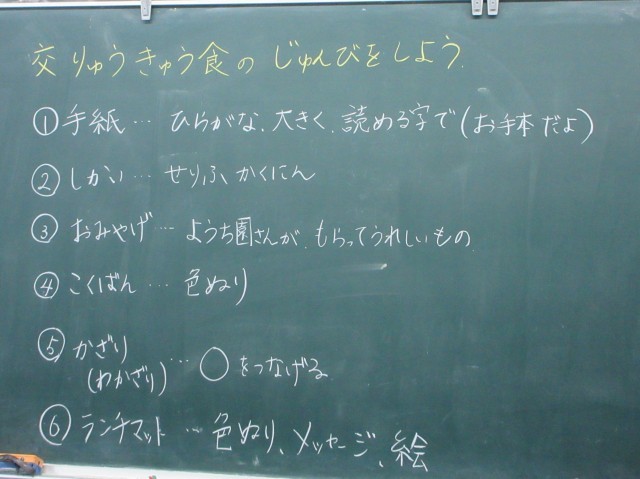 交りゅうきゅう食のじゅんびをしよう.
①手紙…ひらがな、大きく、読める字で(お手本だよ)
②しかい…せりふ、かくにん
③おみやげ…ようち園さんが、もらってうれしいもの
④こくばん…色ぬり
⑤かざり
(わかざり)…○をつなげる
⑥ランチマット…色ぬり、メッセージ、絵